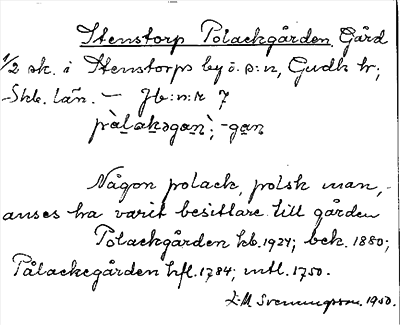 Stenstorp Polackgården. Gård
1/2 sk. i Stenstorps by ö. s:n, Gudh. hr;
Skb. län. — Jb:n:r 7
pàlakəgaṇ; -gaṇ
Någon polack, polsk man,
anses ha varit besittare till gården
Polackgården hb. 1924; bek. 1880;
Pålackegården hfl. 1784; mtl. 1750.
Z.M. Svenningsson. 1950.